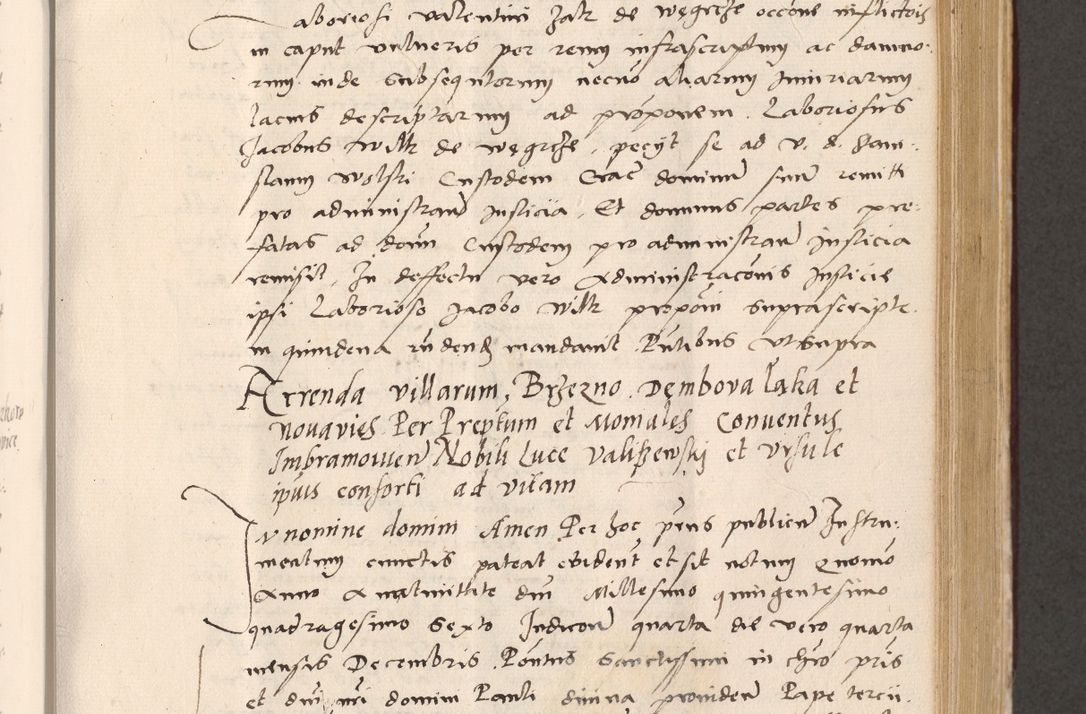 Laboriosi Valentini Jalz de Węgrcze occōne inflictōis
in caput vulneris per reum infrascriptum ac damno-
rum inde subsequtorum necnō aliarum Iniuriarum
lacius descriptarum ad proponem. Laboriosus
Jacobus Wilk de Węgrcze, pecyt se ad V. d. Stani-
slaum Wolski Custodem Crac dominum suum remitti
pro administran Iusticia. Et dominus partes pre-
fatas ad doim Custodem pro administran iusticia
remisit, In deffectu vero Administracōnis Iusticie
ipsi Laborioso Jacobo Wilk propōni suprascripte
in quindena rūdendū mandavit. Pūtibus ut supra
Arrenda villarum, Brzezno. Dembova Laka et
Per Preptum et Moniales Conventus
Imbramowien Nobili Luce Valiszewskj et Ursule
ipius consorti ad vitam
In nomine domini Amen Per hoc pūns publicum Instru-
mentum cunctis pateat evident et sit notum Quomō
Anno A nativitate dni Millesimo quingentesimo
quadragesimo Sexto Indicōn quarta die vero quarta
mensis Decembris. Pontus Sanctissimi in chro pris
et dni nri domini Pauli divina providen Pape tercii.